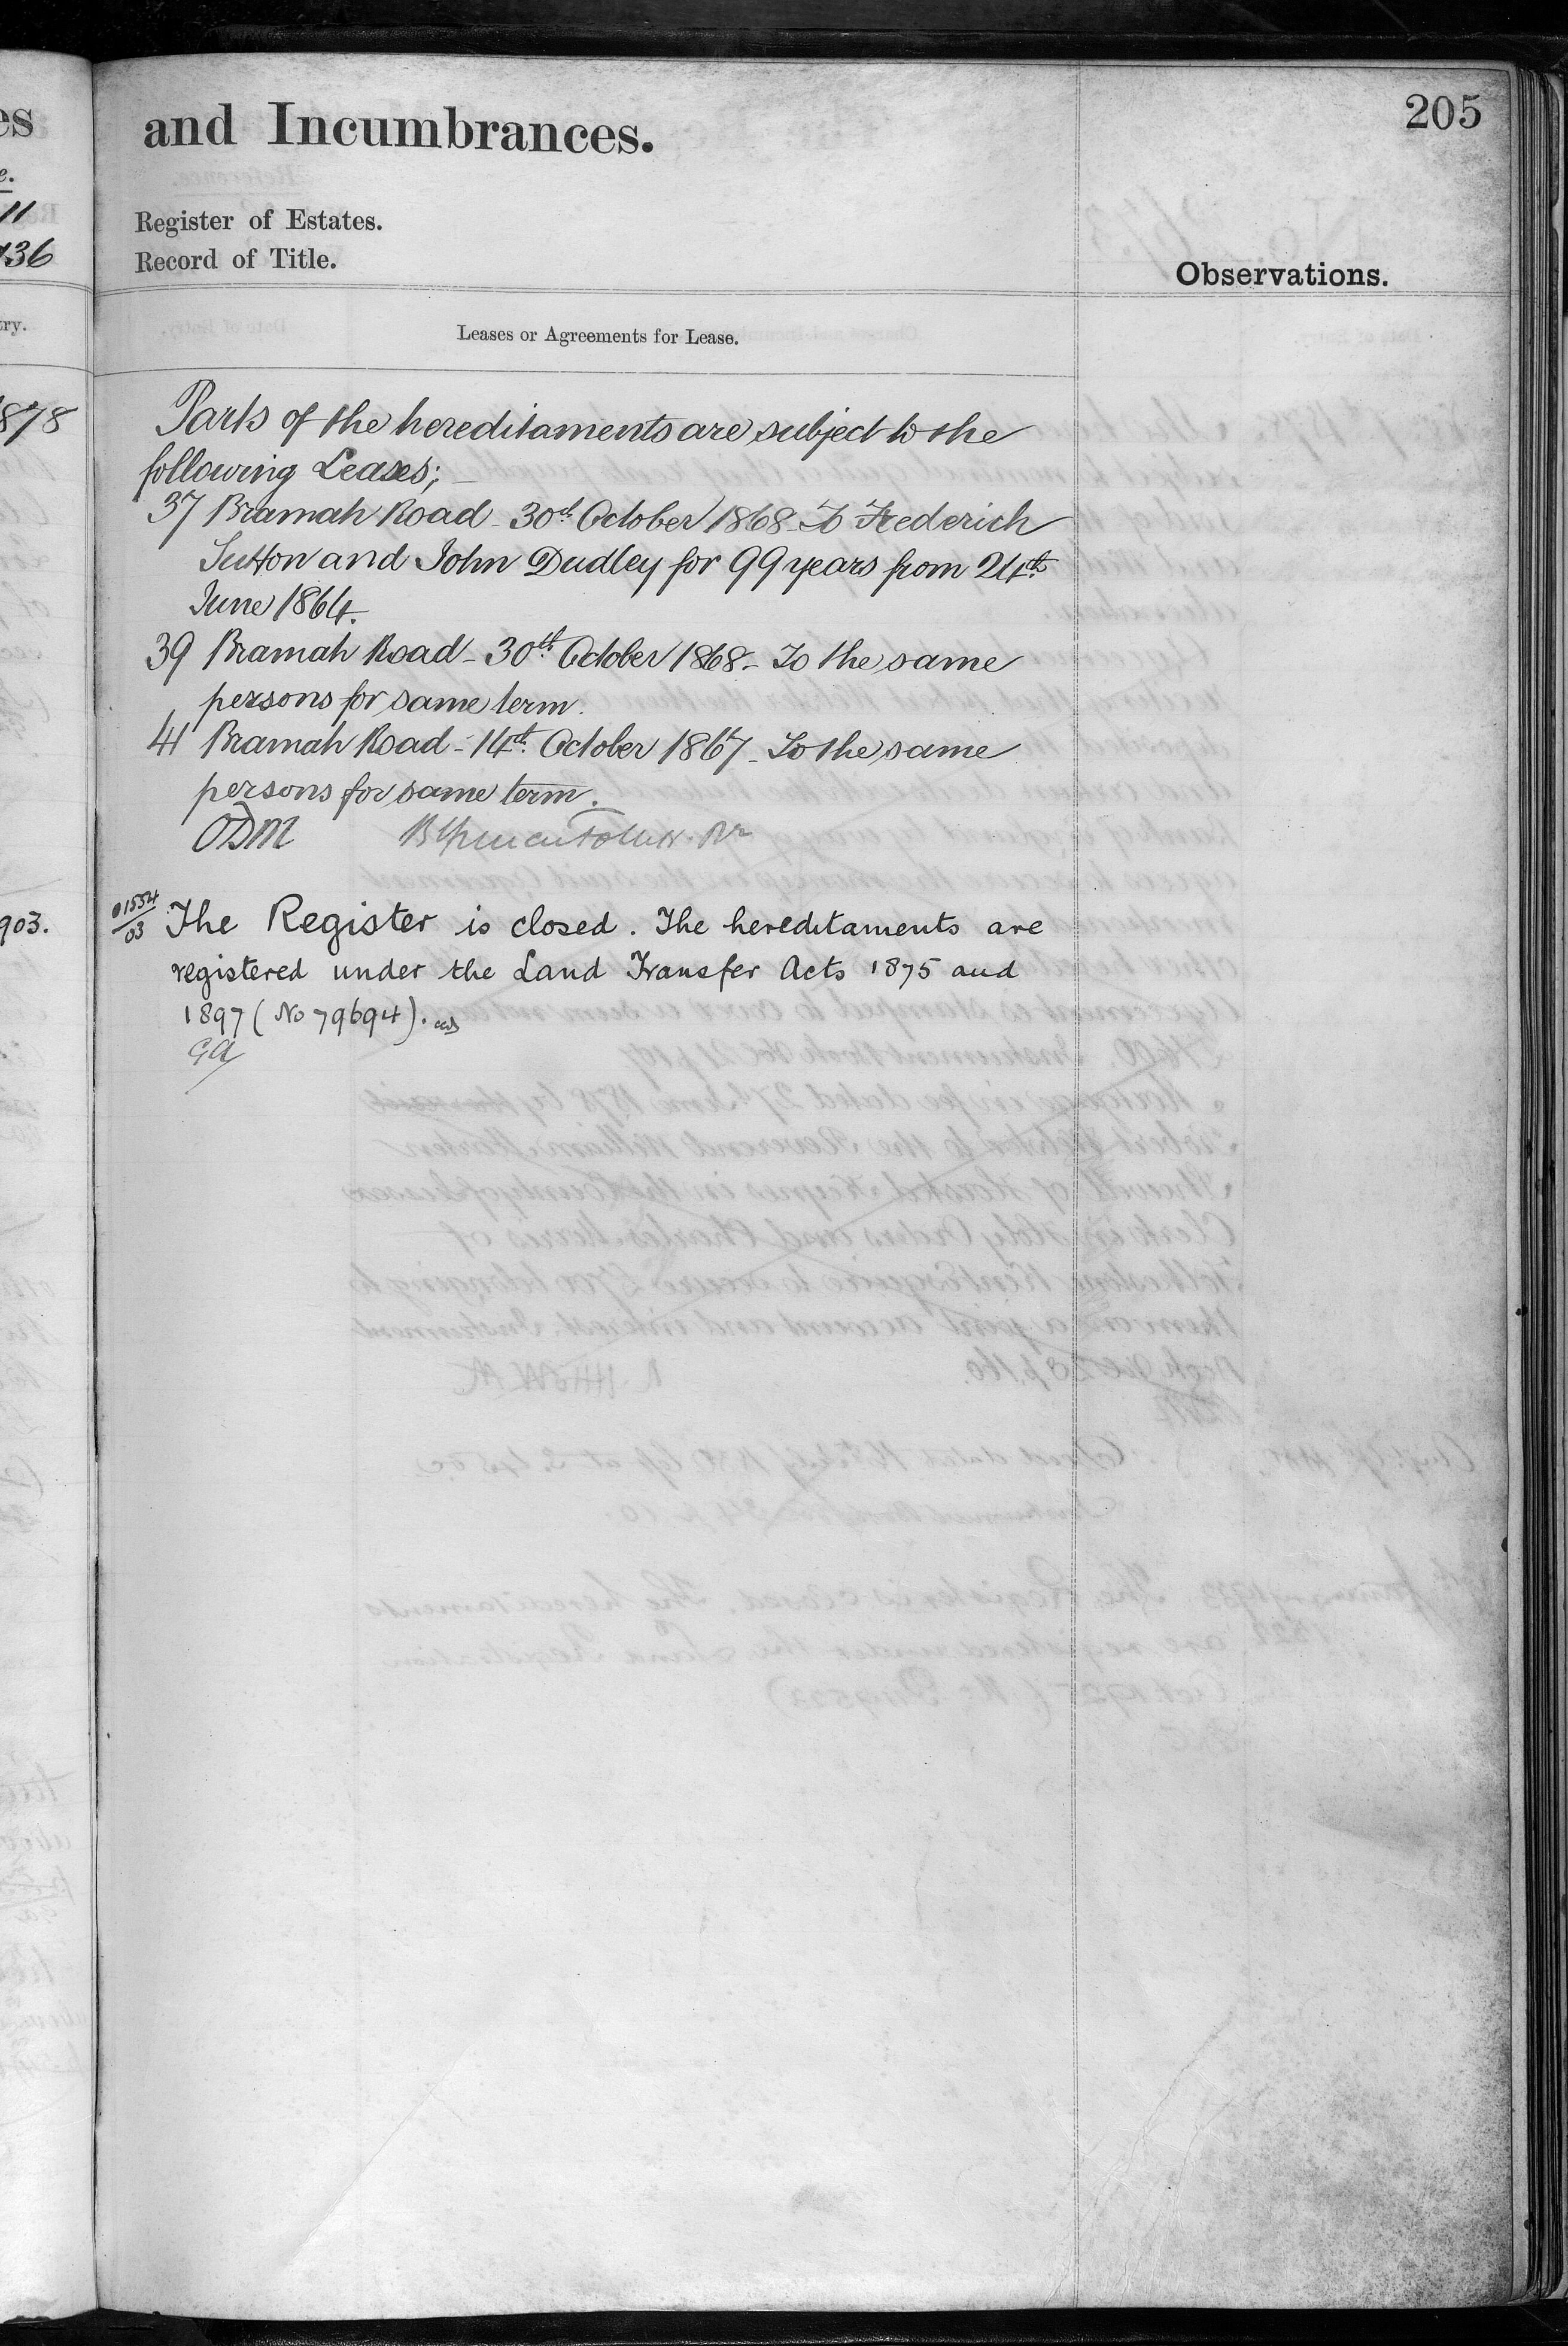 205
and Incumbrances.
Register of Estates.
Record of Title.
Observations.
Leases or Agreements for Lease.
Parts of the hereditaments are subject to the
following Leases;
37 Bramah Road - 30th October 1868 - To Frederich
Sutton and John Dudley for 99 years from 24th
June 1864.
39 Bramah Road - 30th October 1868 - To the same
persons for same term.
41 Bramah Road - 14th October 1867 - To the same
persons for same term.
ODM
01554/03 The Register is closed. The hereditaments are
registered under the Land Transfer Acts 1875 and
1897 (No 79694).
GA
es
e.
11
136
try.
1878
903.